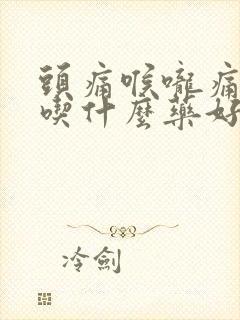 頭痛喉嚨痛
喫什麼藥好
冷劍